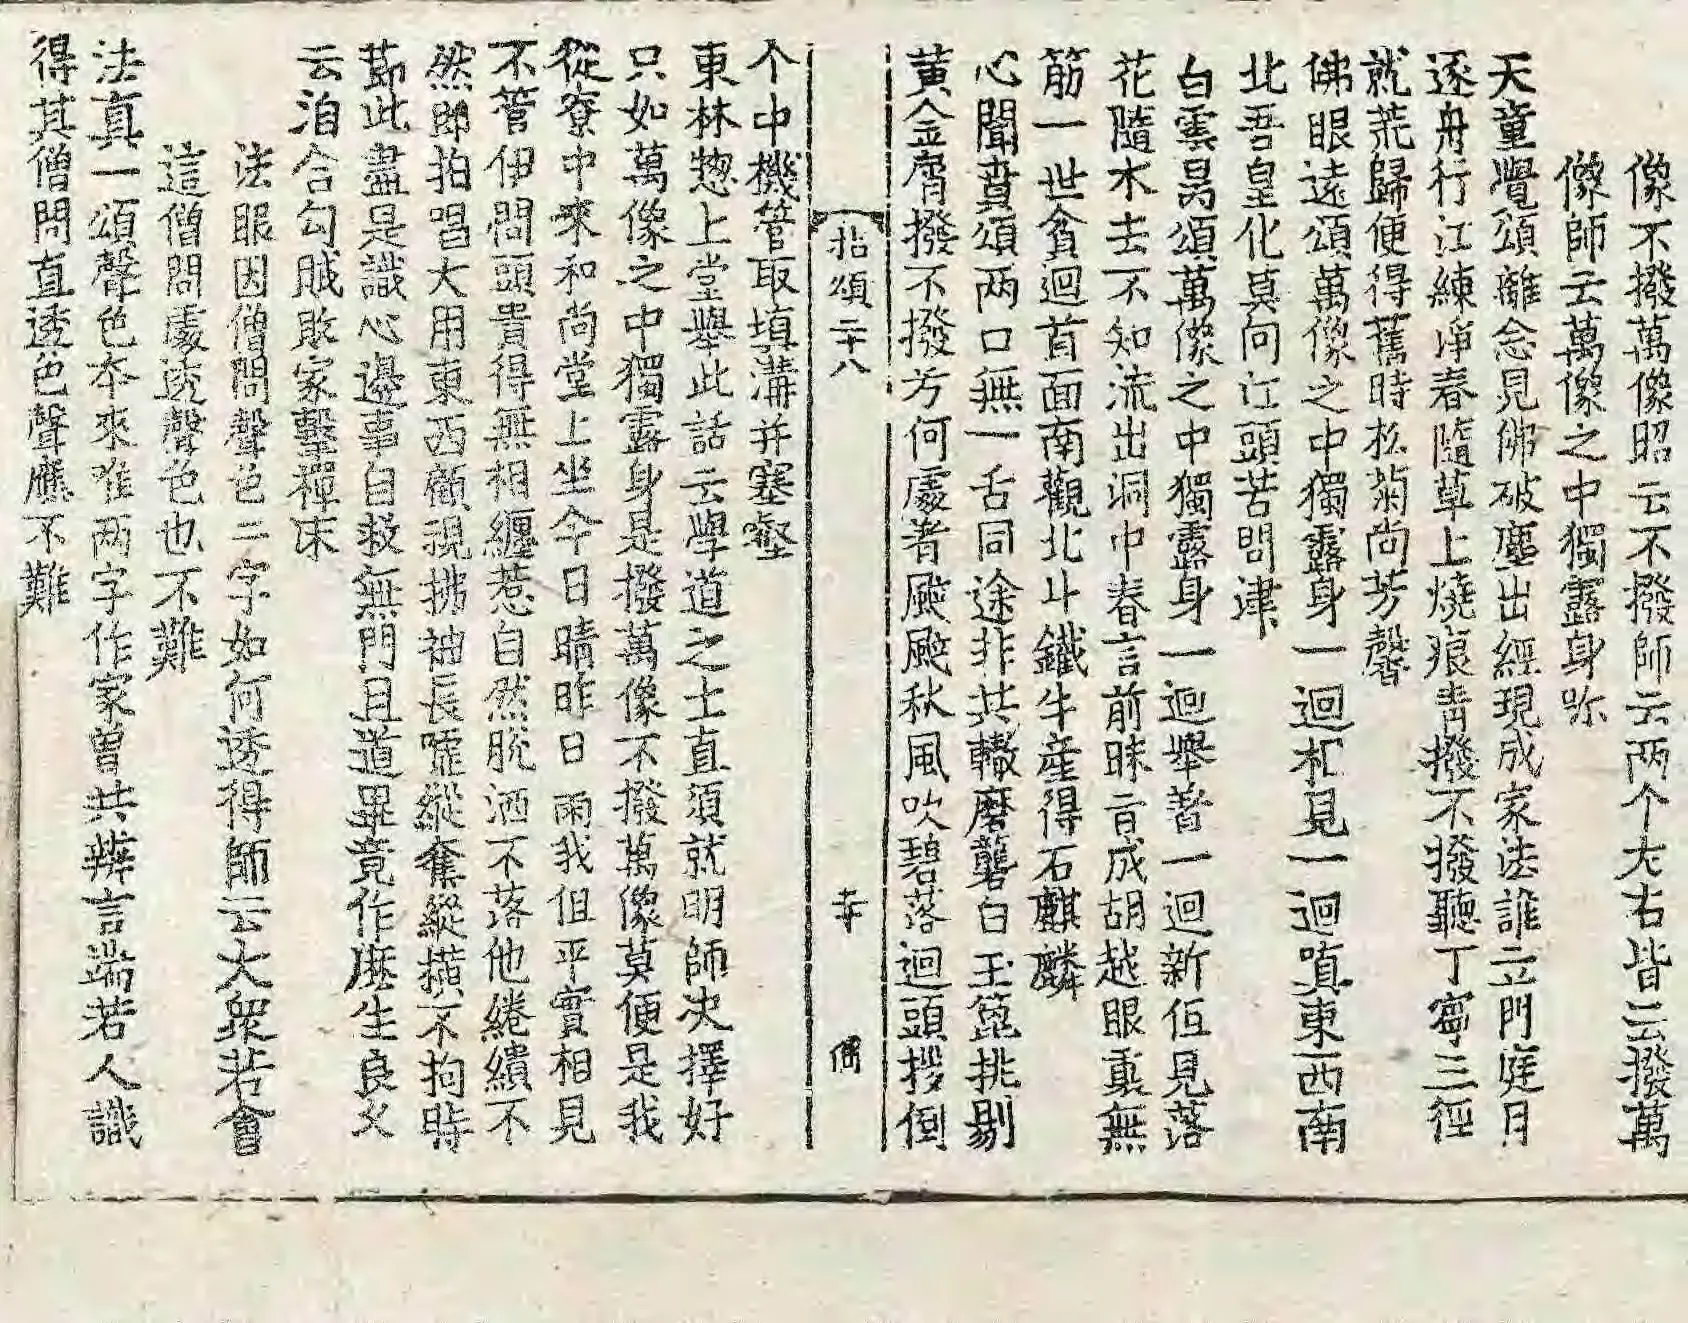 像不撥萬像昭云不撥師云两个大右皆云撥萬
像師云萬像之中獨露身吖
天童覺頌離念見佛破塵出經現成家法誰立門庭月
逐舟行江練淨春隨草上燒痕青撥不撥聽丁寧三徑
就荒歸便得舊時松菊尚芳馨
佛眼遠頌萬像之中獨露身一迴相見一迴嗔東西南
北吾皇化莫向江頭苦問津
白雲昺頌萬像之中獨露身一迴舉著一迴新但見落
花隨水去不知流出洞中春言前昧旨成胡越眼裏無
筋一世貧迴首面南觀北斗鐵牛産得石麒麟
心聞賁頌两口無一舌同途非共轍磨礱白玉篦挑剔
黃金屑撥不撥芳何處著颾颾秋風吹碧落迴頭拶倒
拈頌二十八
个中機管取填溝并塞壑
東林惣上堂舉此話云學道之士直須就明師決擇好
只如萬像之中獨露身是撥萬像不撥萬像莫便是我
從寮中來和尚堂上坐今日晴昨日雨我伹平實相見
不管伊問頭貴得無相纏惹自然脫洒不落他綣繢不
然即拍唱大用東西顧視拂袖長噓縱奪縱橫不拘時
莭此盡是識心邊事自救無門且道畢竟作麽生良久
云洎合勾賊敗家擊禪床
法眼因僧問聲色二字如何透得師云大衆若會
這僧問處透聲色也不難
法真一頌聲色本來唯两字作家曾共辨言端若人識
得其僧問直透色聲應不難